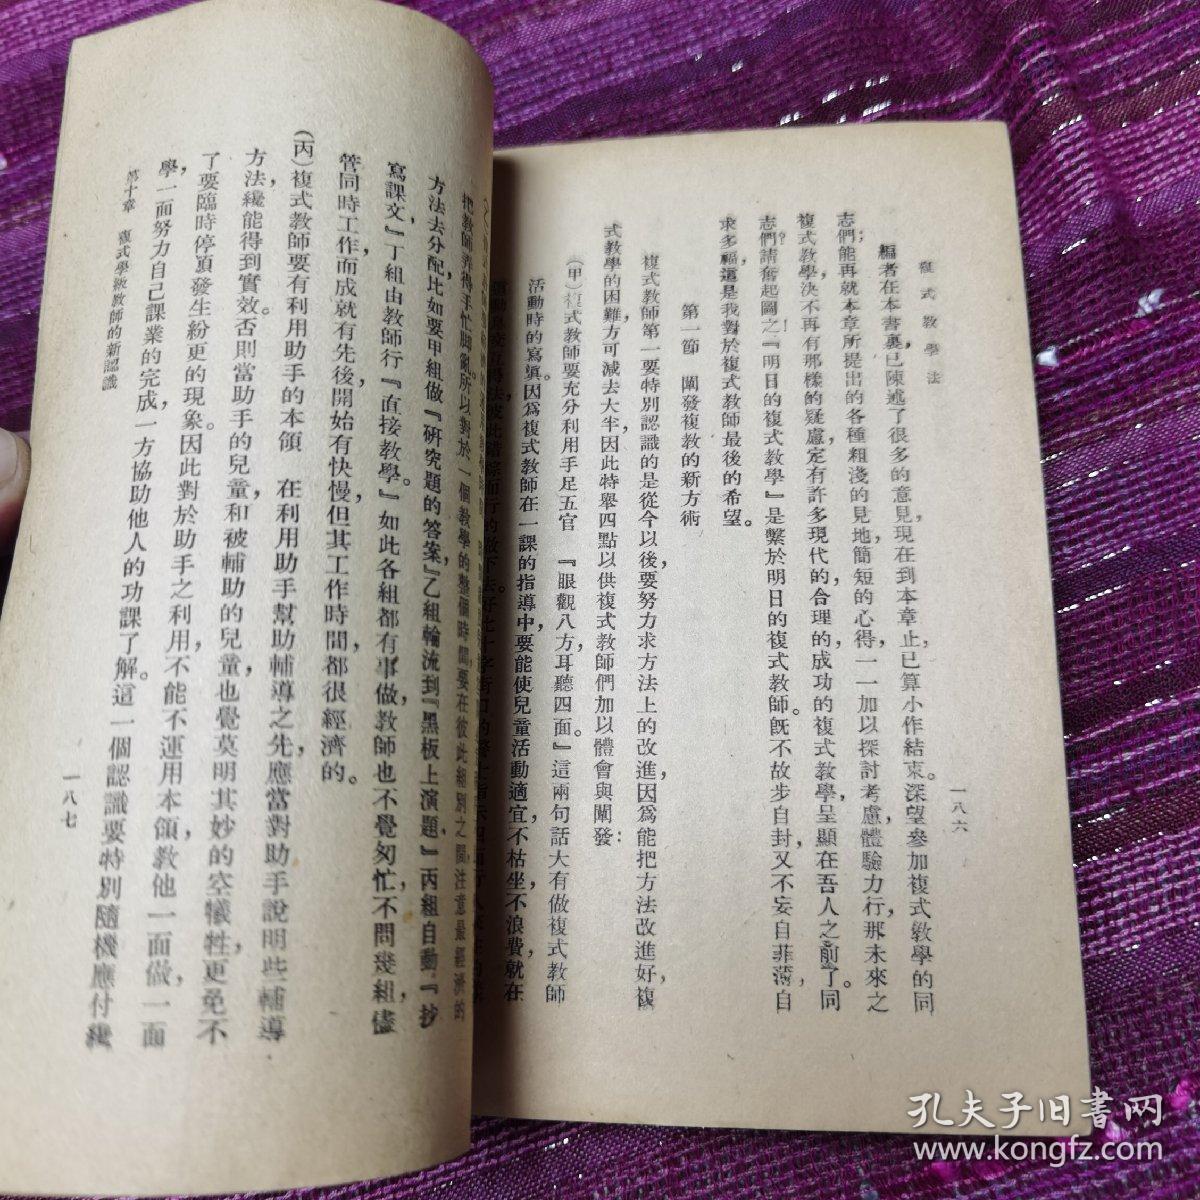 複式教學法
一八六
編者在本書裏已陳述了很多的意見，現在到本章止，已算小作結束。深望參加複式教學的同
志們能再就本章所提出的各種粗淺的見地，簡短的心得，一一加以探討考慮體驗力行，那未來之
複式教學決不再有那樣的疑慮，定有許多現代的，合理的，成功的複式教學呈顯在吾人之前了。同
志們！請奮起圖之！『明日的複式教學』是繫於明日的複式教師。旣不故步自封，又不妄自菲薄，自
求多福，這是我對於複式教師最後的希望。
第一節　闡發複教的新方術
複式教師第一要特別認識的是從今以後要努力求方法上的改進，因爲能把方法改進好，複
式教學的困難方可減去大半，因此特舉四點以供複式教師們加以體會與闡發：
（甲）複式教師要充分利用手足五官　『眼觀八方，耳聽四面。』這兩句話大有做複式教師
活動時的寫眞。因爲複式教師在一課的指導中，要能使兒童活動適宜，不枯坐，不浪費，就在
把教師弄得手忙脚亂。所以對於一個教學的整個時間，要在彼此組別之間，注意最經濟的
方法去分配，比如要甲組做『研究題的答案』，乙組輪流到『黑板上演題』，丙組自動『抄
寫課文』，丁組由教師行『直接教學』。如此各組都有事做，教師也不覺匆忙，不問幾組，儘
管同時工作，而成就有先後，開始有快慢，但其工作時間都很經濟的。
（丙）複式教師要有利用助手的本領　在利用助手幫助輔導之先，應當對助手說明些輔導
方法，纔能得到實效。否則當助手的兒童和被輔助的兒童，也覺莫明其妙的空犧牲，更免不
了要臨時停頓，發生紛更的現象。因此對於助手之利用，不能不運用本領，教他一面做，一面
學，一面努力自己課業的完成，一方協助他人的功課了解。這一個認識要特別隨機應付，纔
第十章　複式學級教師的新認識
一八七
孔夫子旧書网
www.kongfz.com